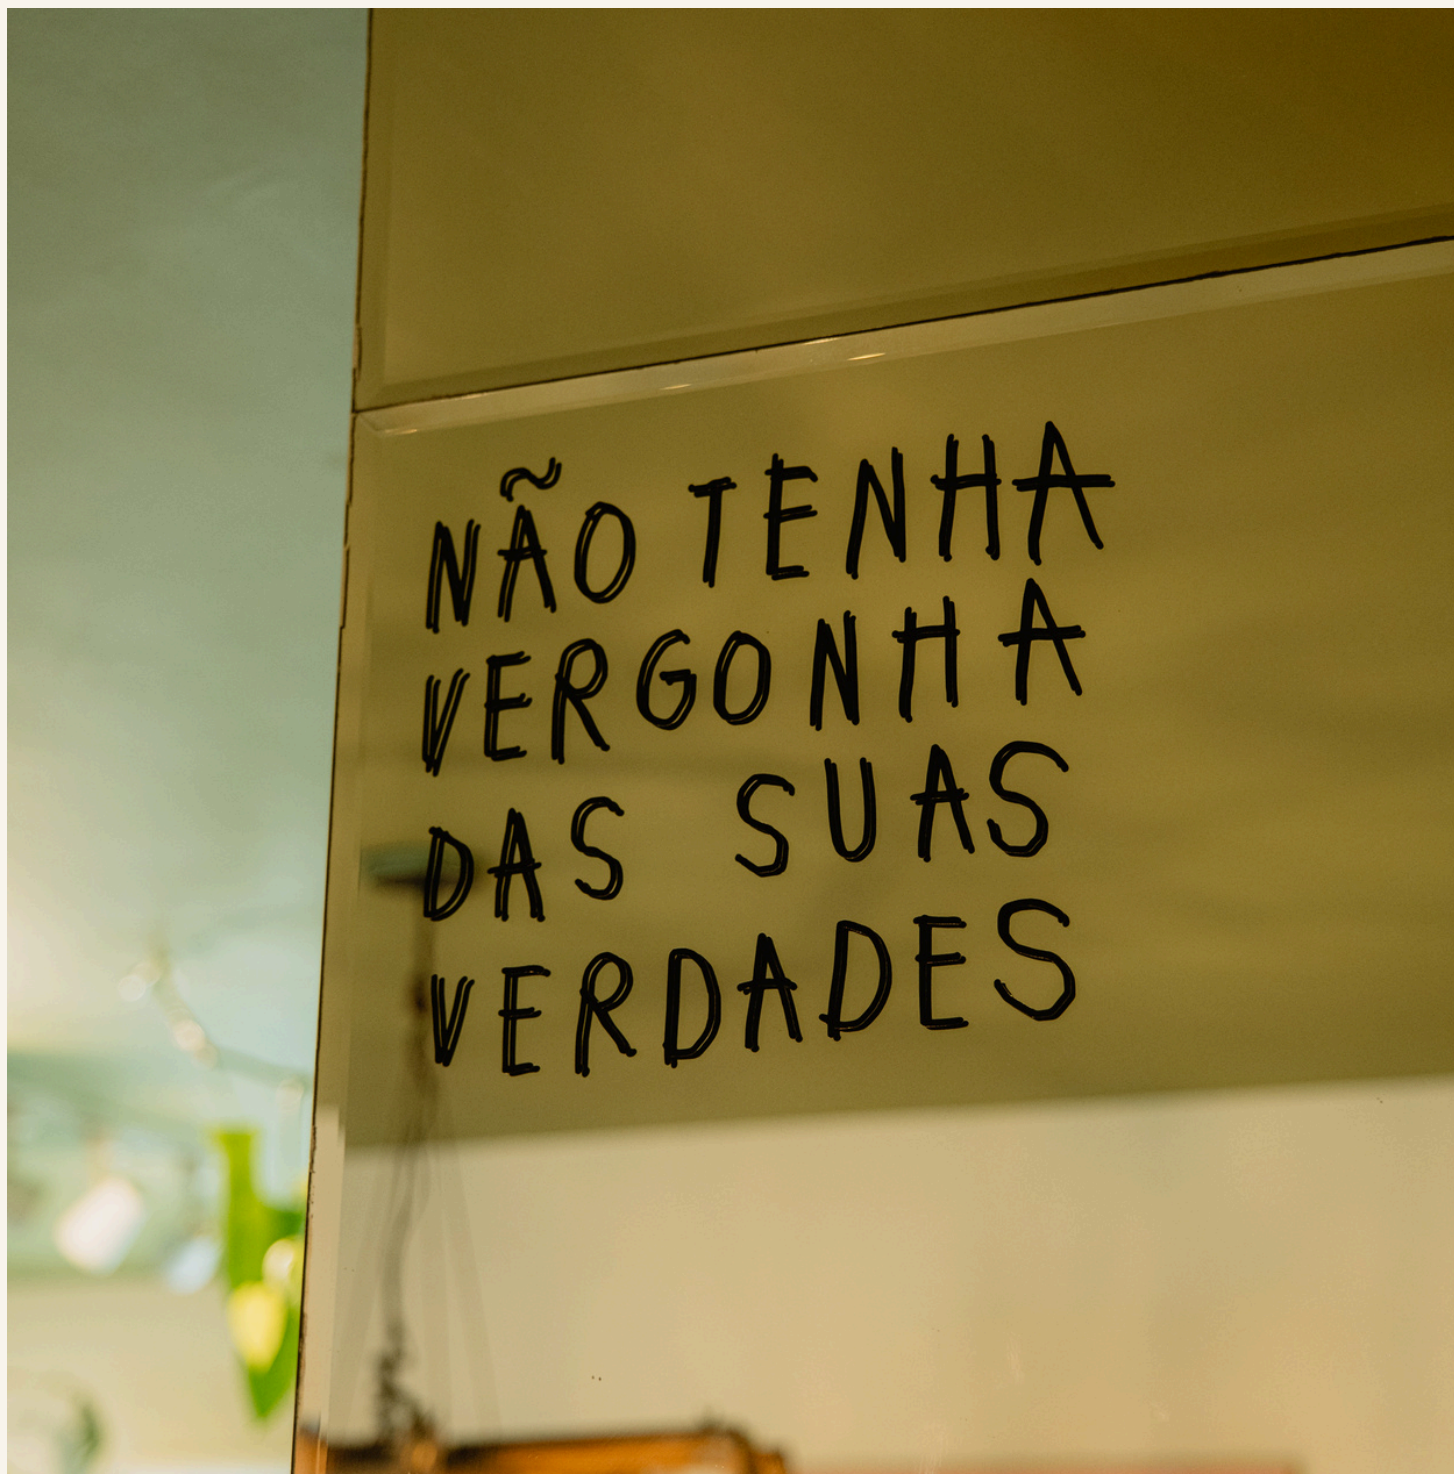 NÃO TENHA
VERGONHA
DAS SUAS
VERDADES